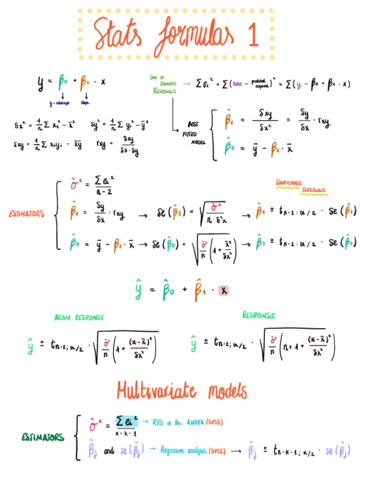 Stats formulas 1
y = β₀ + β₁ · x
y-intercept slope
SUM OF SQUARED RESIDUALS → Σ ei² = Σ ( - predicted response)² = Σ (y - β₀ + β₁ · x)
sx² = 1/n Σ xi² - x̄² sy² = 1/n Σ yi² - ȳ²
sxy = 1/n Σ xiyi - x̄ȳ rxy = sxy / sx · sy
BEST FITTED MODEL
β̂₁ = sxy / sx² = sy / sx · rxy
β̂₀ = ȳ - β̂₁ · x̄
CONFIDENCE INTERVALS
ESTIMATORS
σ̂² = Σ ei² / n-2
β̂₁ = sy / sx · rxy → se (β̂₁) = √ σ̂² / n · s²x → β̂₁ ± tn-2; α/2 · se (β̂₁)
β̂₀ = ȳ - β̂₁ · x̄ → se (β̂₀) = √ σ̂² / n (1 + x̄² / sx²) → β̂₀ ± tn-2; α/2 · se (β̂₀)
ŷ = β̂₀ + β̂₁ · x
MEAN RESPONSE
ŷ ± tn-2; α/2 · √ σ̂² / n (1 + (x-x̄)² / sx²)
RESPONSE
ŷ ± tn-2; α/2 · √ σ̂² / n (n + 1 + (x-x̄)² / sx²)
Multivariate models
ESTIMATORS
σ̂² = Σ ei² / n-k-1 → ANOVA (SPSS)
β̂j and se (β̂j) → Regression analysis (SPSS) → β̂j ± tn-k-1; α/2 · se (β̂j)